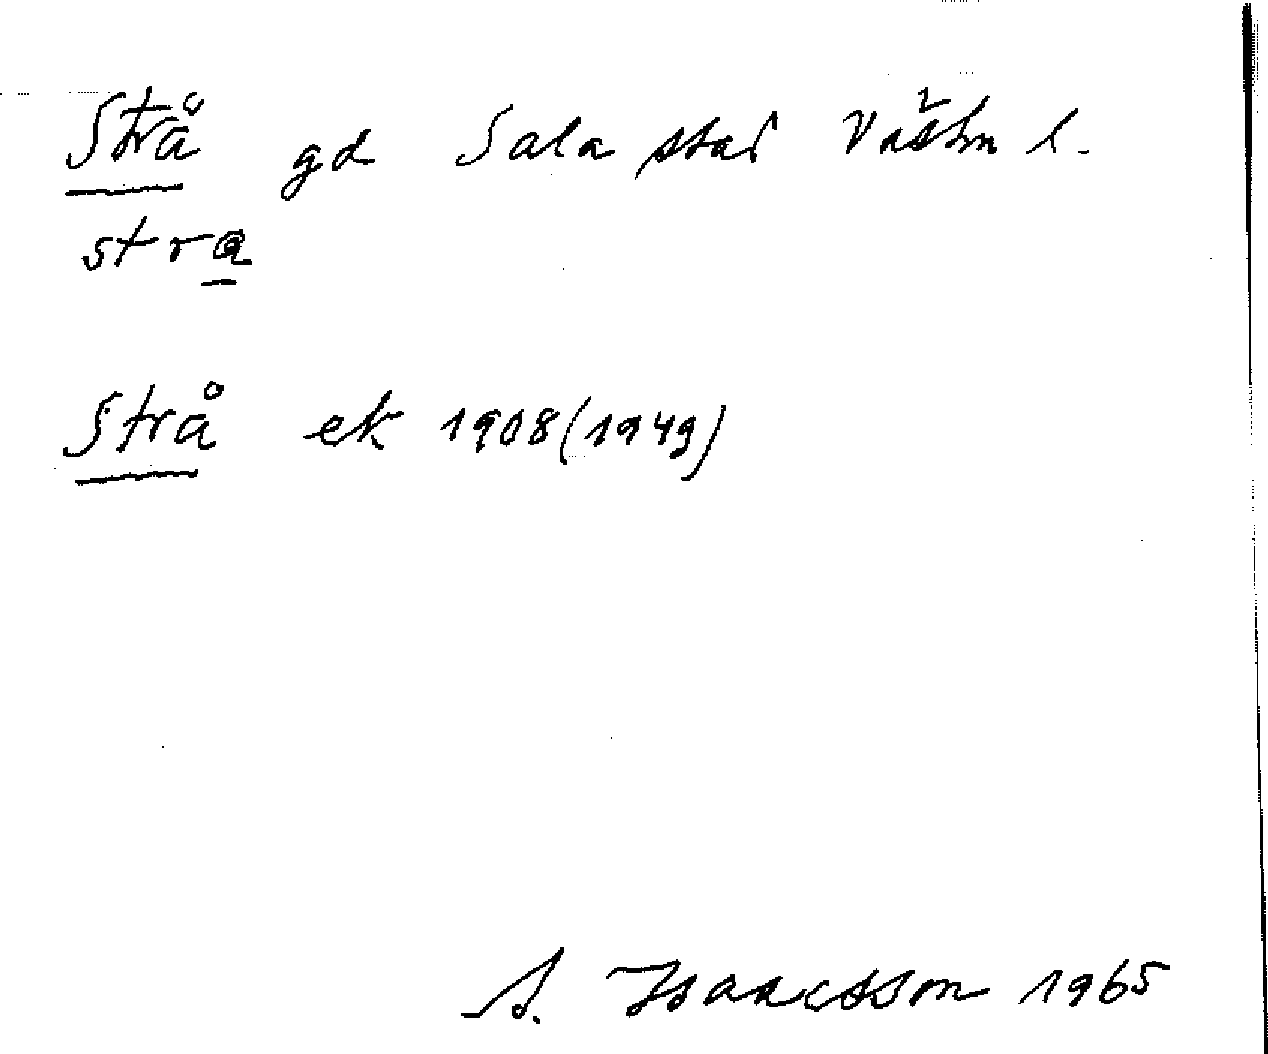 Strå gd Sala stad Västm l.
stra
Strå ek 1908 (1949)
S. Isaacsson 1965